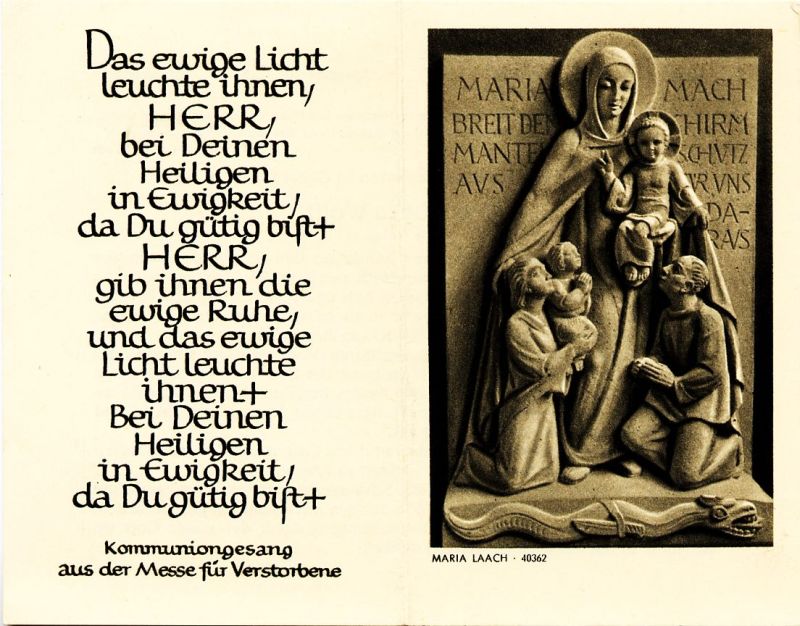 Das ewige Licht
leuchte ihnen,
HERR,
bei Deinen
Heiligen
in Ewigkeit,
da Du gütig bist+
HERR,
gib ihnen die
ewige Ruhe,
und das ewige
Licht leuchte
ihnen+
Bei Deinen
Heiligen
in Ewigkeit,
da Du gütig bist+
Kommuniongesang
aus der Messe für Verstorbene
MARIA
BREIT DEN
MANTEL
AVS
MACH
SCHIRM
SCHVTZ
FVR VNS
DA-
RAVS
MARIA LAACH · 40362